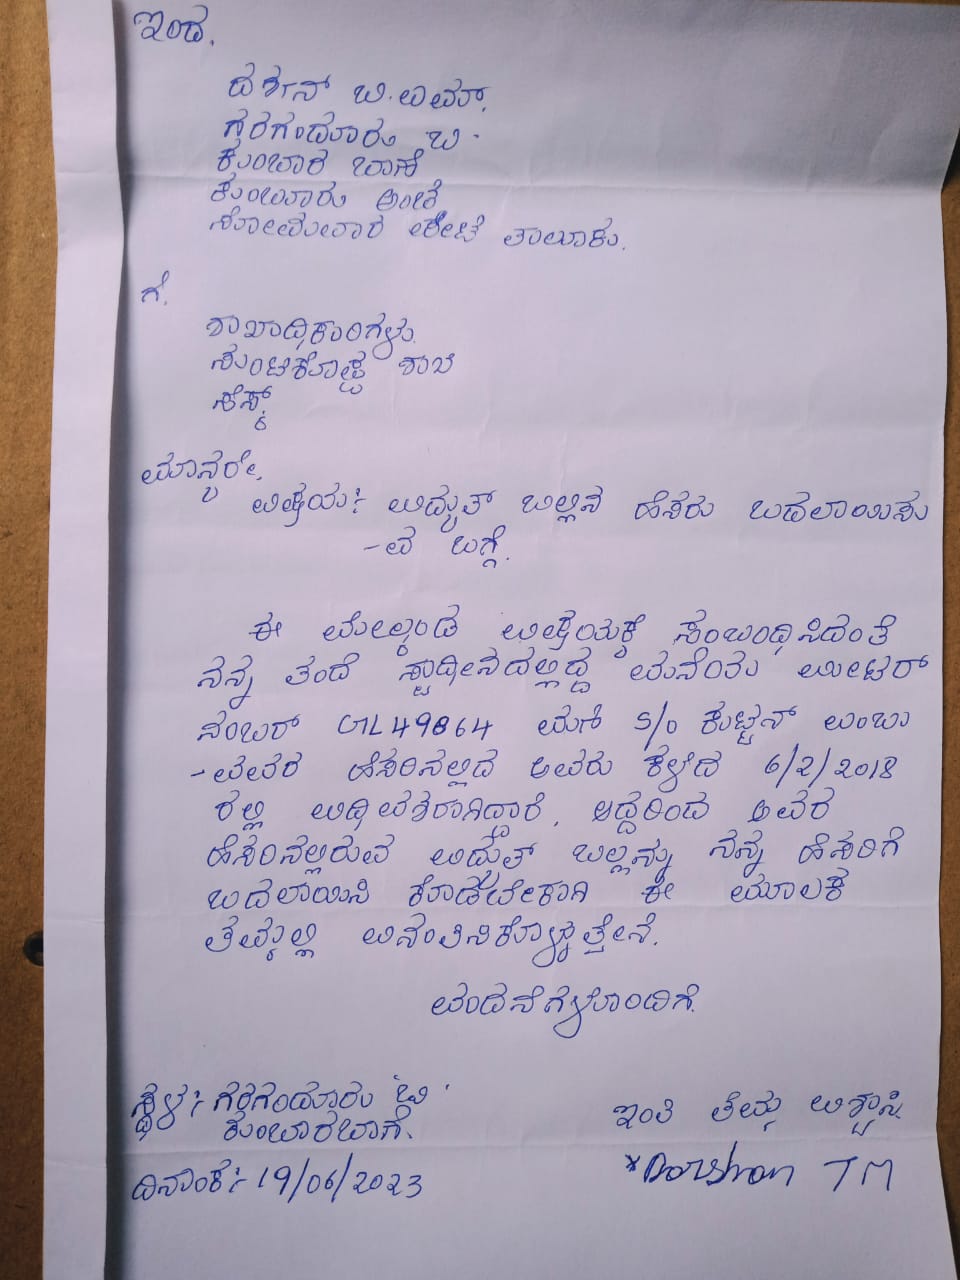 ಇಂದ,
ದರ್ಶನ್ ಟಿ.ಎಮ್.
ಗರಗಂದೂರು ಬಿ.
ಕುಂಬಾರ ಬಾಣೆ
ಕುಂಬೂರು ಅಂಚೆ
ಸೋಮವಾರ ಪೇಟೆ ತಾಲೂಕು.
ಗೆ,
ಶಾಖಾಧಿಕಾರಿಗಳು
ಸುಂಟಿಕೊಪ್ಪ ಶಾಖೆ
ಸೆಸ್ಕ್
ಮಾನ್ಯರೇ,
ವಿಷಯ:- ವಿದ್ಯುತ್ ಬಿಲ್ಲಿನ ಹೆಸರು ಬದಲಾಯಿಸು
-ವ ಬಗ್ಗೆ.
ಈ ಮೇಲ್ಕಂಡ ವಿಷಯಕ್ಕೆ ಸಂಬಂಧಿಸಿದಂತೆ
ನನ್ನ ತಂದೆ ಸ್ವಾಧೀನದಲ್ಲಿದ್ದ ಮನೆಯ ಮೀಟರ್
ನಂಬರ್ GL49864 ಮಣಿ S/o ಕುಟ್ಟನ್ ಎಂಬು
-ವವರ ಹೆಸರಿನಲ್ಲಿದೆ ಅವರು ಕಳೆದ 6/2/2018
ರಲ್ಲಿ ವಿಧಿವಶರಾಗಿದ್ದಾರೆ, ಆದ್ದರಿಂದ ಅವರ
ಹೆಸರಿನಲ್ಲಿರುವ ವಿದ್ಯುತ್ ಬಿಲ್ಲನ್ನು ನನ್ನ ಹೆಸರಿಗೆ
ಬದಲಾಯಿಸಿ ಕೊಡಬೇಕಾಗಿ ಈ ಮೂಲಕ
ತಮ್ಮಲ್ಲಿ ವಿನಂತಿಸಿಕೊಳ್ಳುತ್ತೇನೆ.
ವಂದನೆಗಳೊಂದಿಗೆ.
ಸ್ಥಳ:- ಗರಗಂದೂರು 'ಬಿ'
ಕುಂಬಾರಬಾಣೆ.
ಇಂತಿ ತಮ್ಮ ವಿಶ್ವಾಸಿ
ದಿನಾಂಕ:- 19/06/2023
*Darshan TM